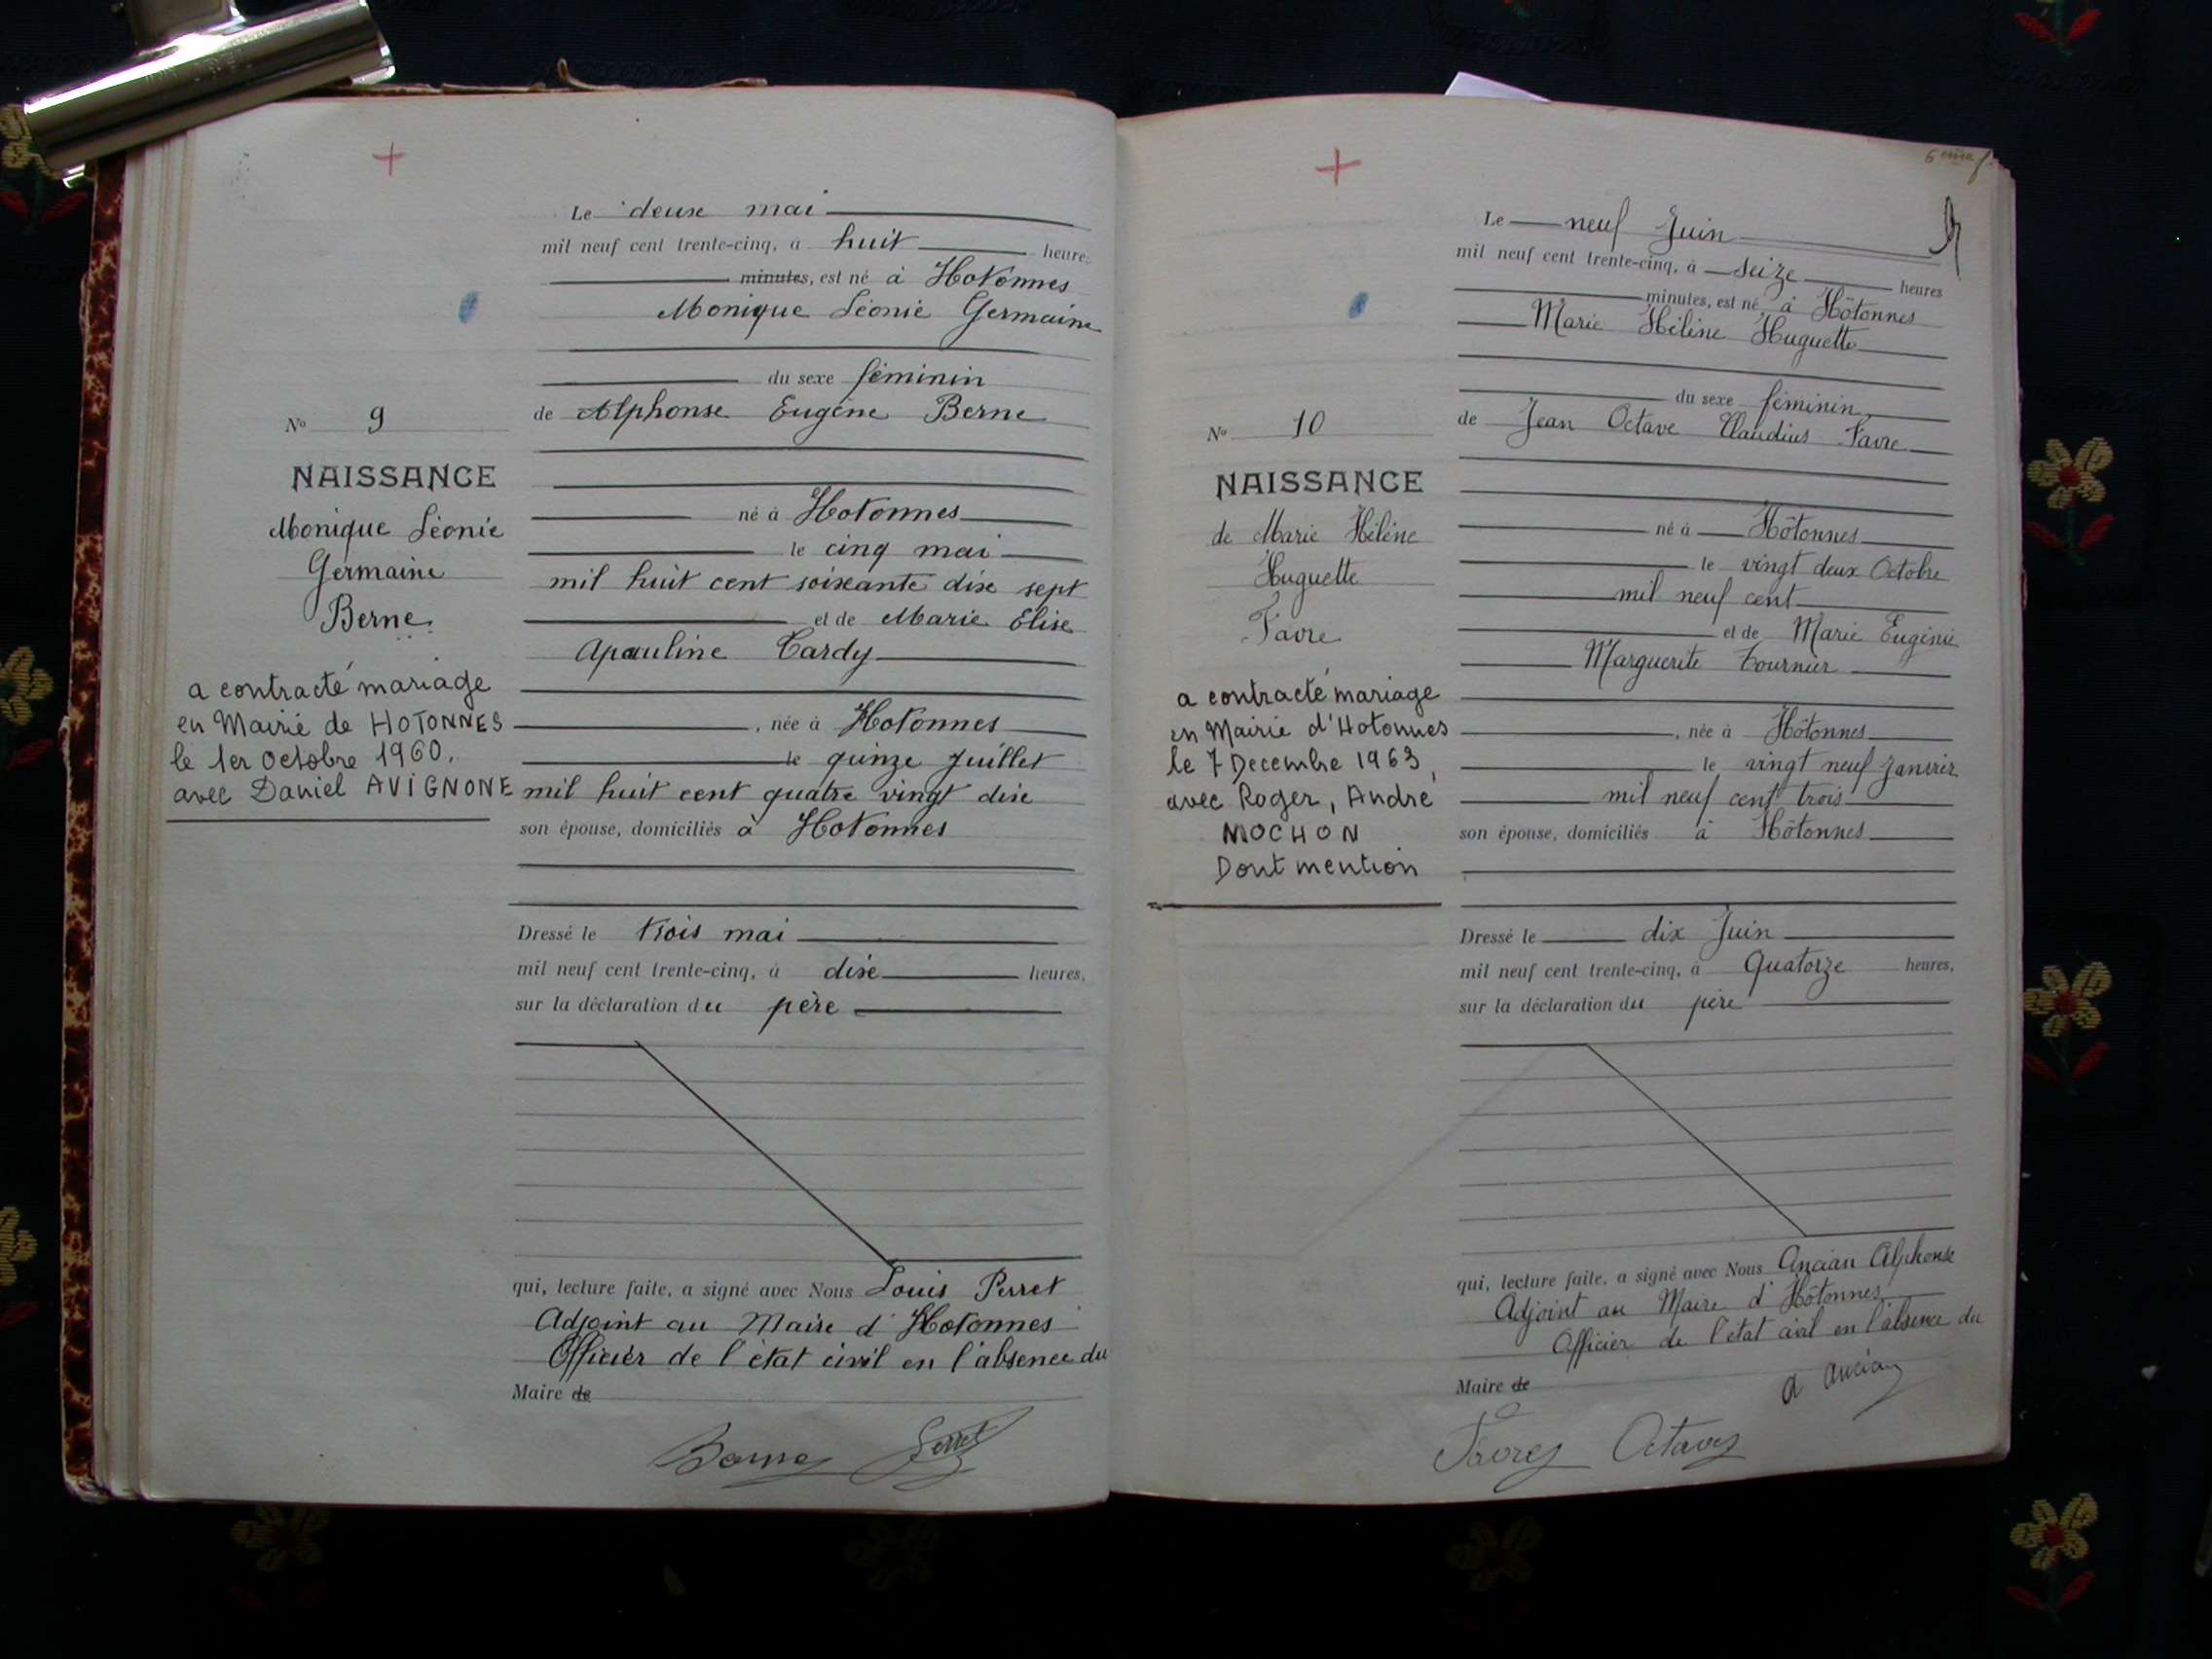 Le deux mai
mil neuf cent trente-cinq, à huit heures
minutes, est né à Hotonnes
Monique Léonie Germaine
du sexe féminin
de Alphonse Eugène Berne
No 9
NAISSANCE
Monique Léonie
Germaine
Berne
a contracté mariage
en Mairie de HOTONNES
le 1er octobre 1960.
avec Daniel AVIGNONE
né à Hotonnes
le cinq mai
mil huit cent soixante dix sept
et de Marie Elise
Apauline Cardy
, née à Hotonnes
le quinze Juillet
mil huit cent quatre vingt dix
son épouse, domiciliés à Hotonnes
Dressé le trois mai
mil neuf cent trente-cinq, à dix heures,
sur la déclaration du père
qui, lecture faite, a signé avec Nous Louis Perret
Adjoint au Maire d'Hotonnes
Officier de l'état civil en l'absence du
Maire de
Berne Perret
Le neuf Juin
mil neuf cent trente-cinq, à seize heures
minutes, est né à Hôtonnes
Marie Hélène Huguette
du sexe féminin
de Jean Octave Claudius Favre
No 10
NAISSANCE
de Marie Hélène
Huguette
Favre
a contracté mariage
en Mairie d'Hotonnes
le 7 Decembre 1963,
avec Roger, André
MOCHON
Dont mention
né à Hôtonnes
le vingt deux Octobre
mil neuf cent
et de Marie Eugénie
Marguerite Tournier
, née à Hôtonnes
le vingt neuf Janvier
mil neuf cent trois
son épouse, domiciliés à Hôtonnes
Dressé le dix Juin
mil neuf cent trente-cinq, à Quatorze heures,
sur la déclaration du père
qui, lecture faite, a signé avec Nous Ancian Alphonse
Adjoint au Maire d'Hôtonnes
Officier de l'état civil en l'absence du
Maire de
A Ancian
Favre Octave